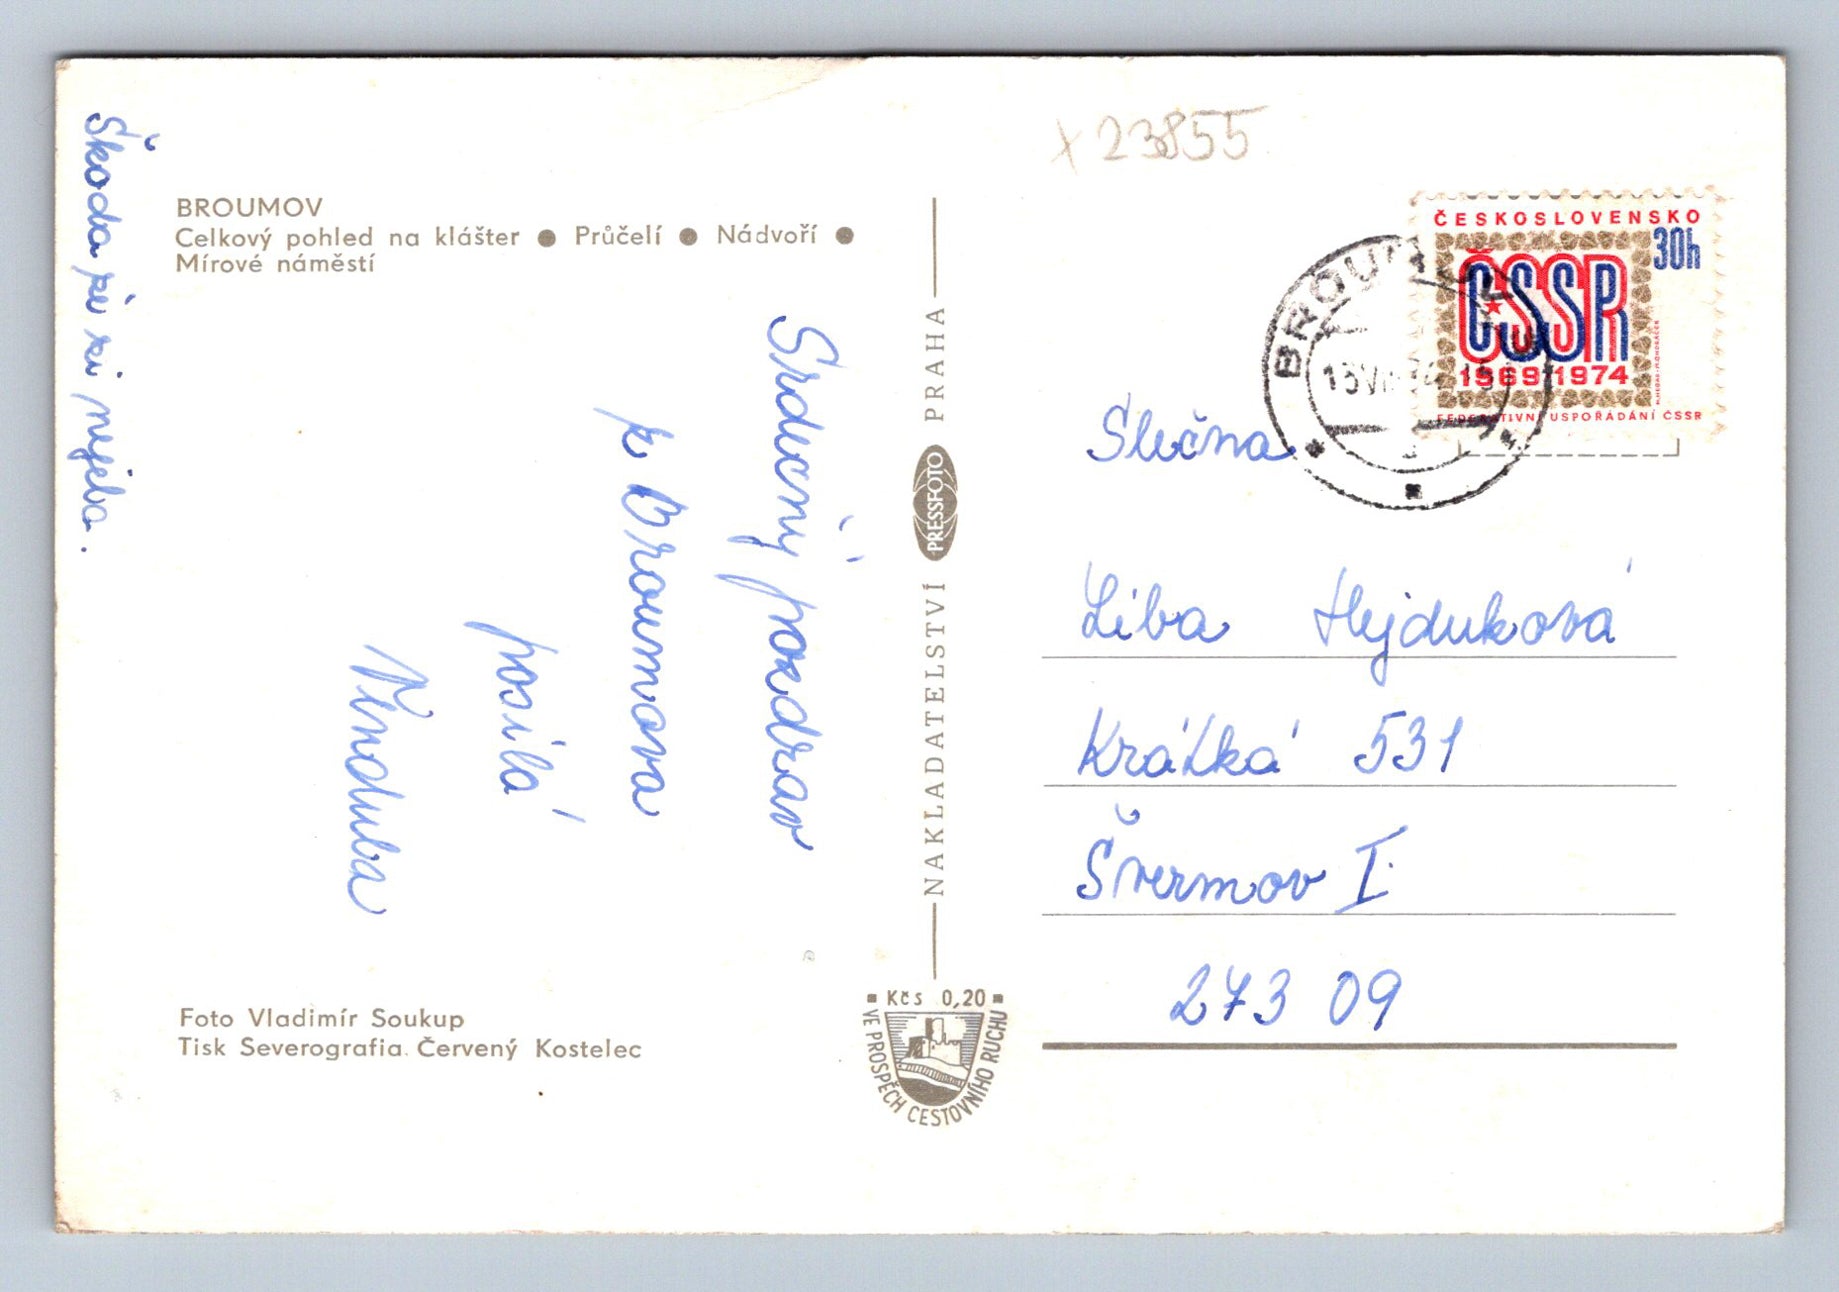 x 23855
BROUMOV
Celkový pohled na klášter ● Průčelí ● Nádvoří ●
Mírové náměstí
Škoda že si nejela.
Srdečný pozdrav
z Broumova
posílá
Foto Vladimír Soukup
Tisk Severografia Červený Kostelec
NAKLADATELSTVÍ PRESSFOTO PRAHA
Kčs 0,20
VE PROSPĚCH CESTOVNÍHO RUCHU
ČESKOSLOVENSKO
30h
ČSSR
1969 1974
FEDERATIVNÍ USPOŘÁDÁNÍ ČSSR
BROUMOV
Slečna
Liba Hejduková
Krátká 531
Švermov I.
273 09